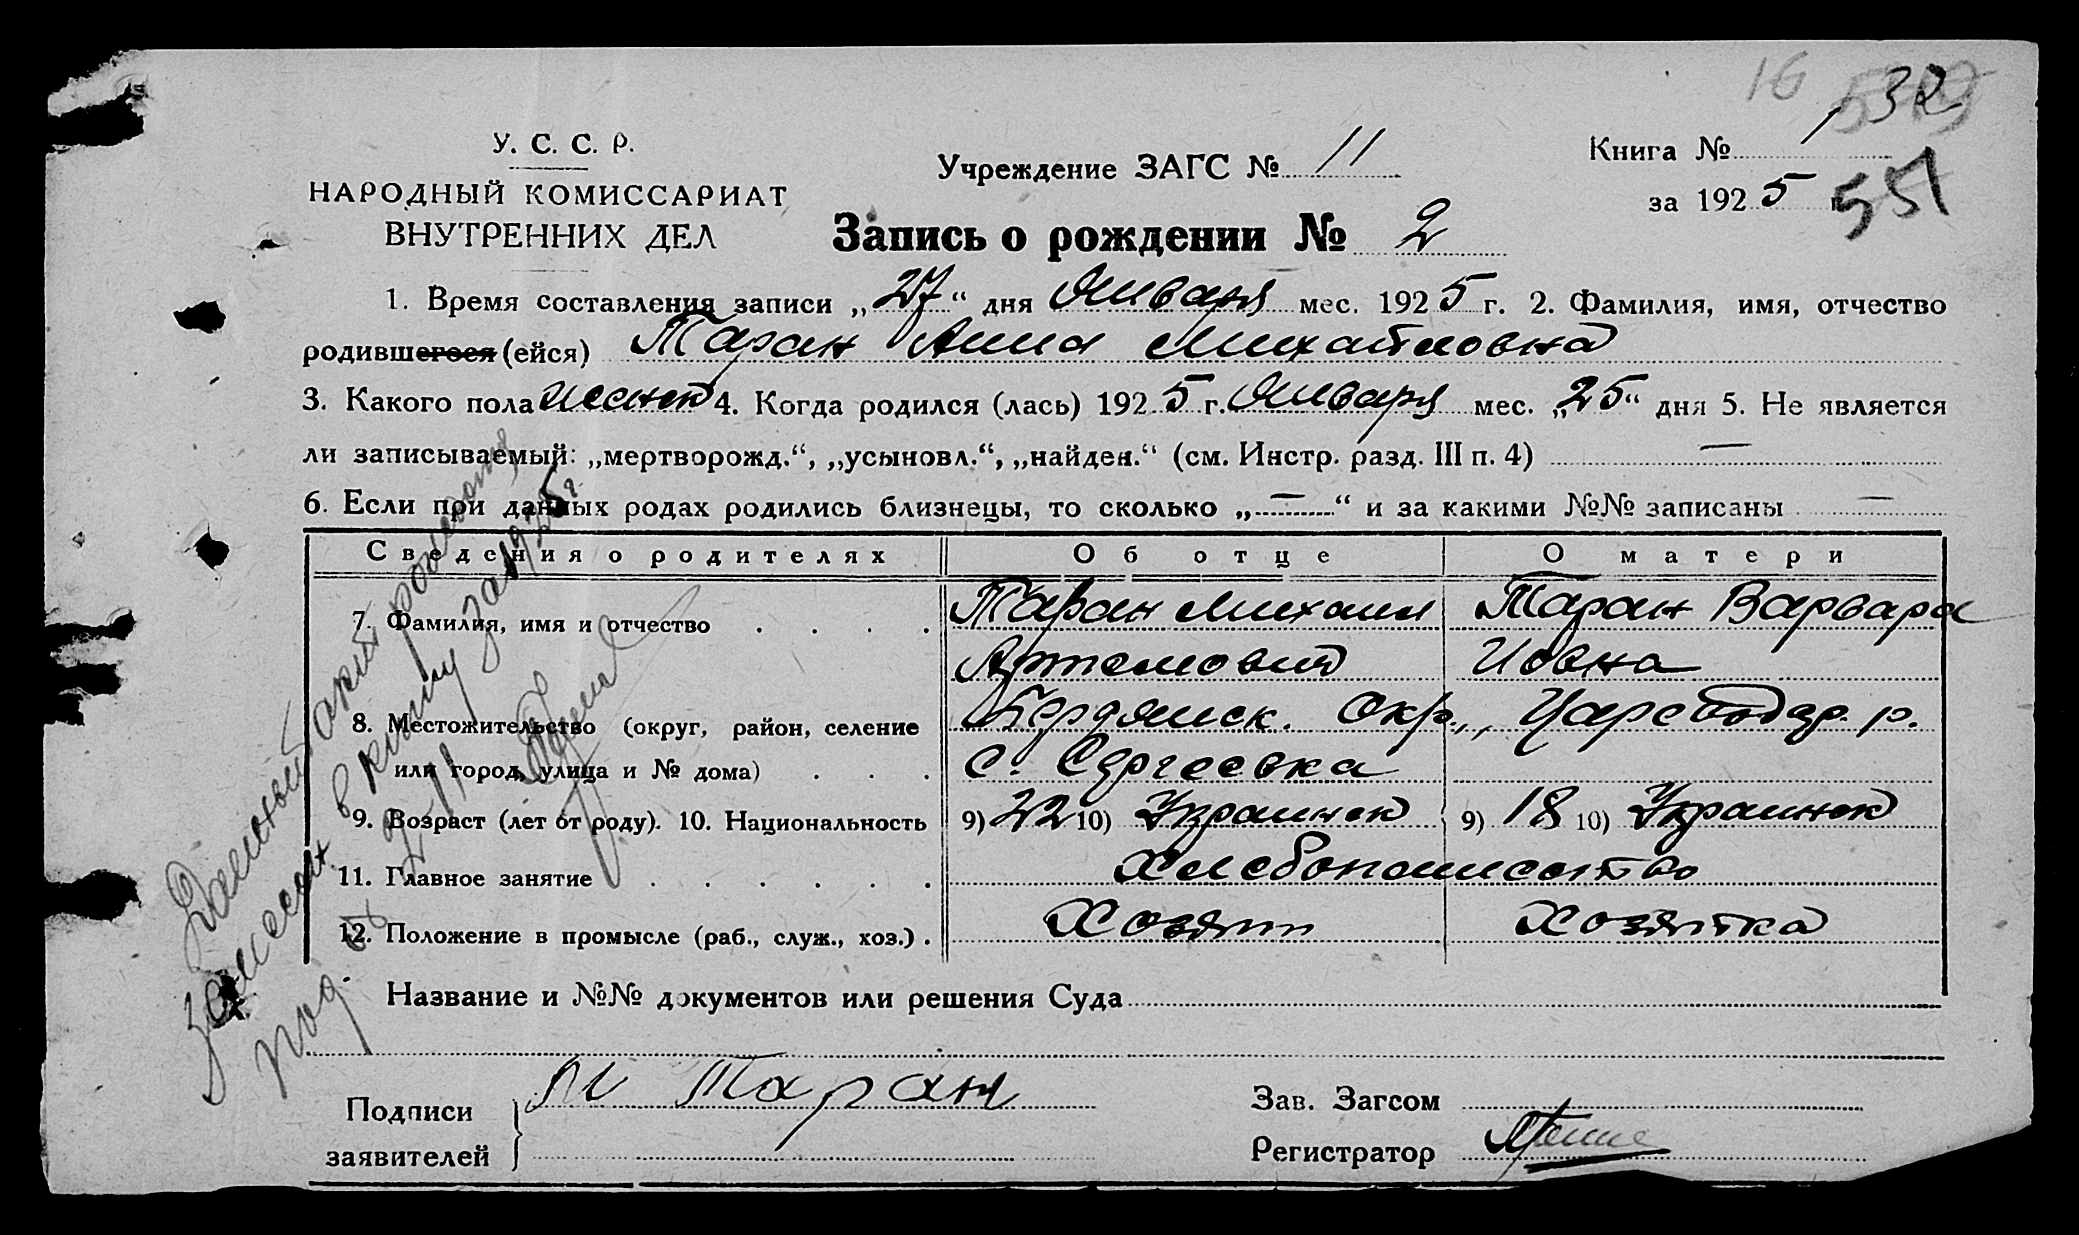 16 32
У. С. С. Р.
НАРОДНЫЙ КОМИССАРИАТ
ВНУТРЕННИХ ДЕЛ
Учреждение ЗАГС № 11
Книга № 1
за 1925 г.
551
Запись о рождении № 2
1. Время составления записи „27“ дня Января мес. 1925 г. 2. Фамилия, имя, отчество
родившегося (ейся) Таран Анна Михайловна
3. Какого пола женск 4. Когда родился (лась) 1925 г. Января мес. „25“ дня 5. Не является
ли записываемый: „мертворожд.“, „усыновл.“, „найден.“ (см. Инстр. разд. III п. 4) —
6. Если при данных родах родились близнецы, то сколько „—“ и за какими №№ записаны —
Сведения о родителях Об отце О матери
7. Фамилия, имя и отчество . . . . Таран Михаил Таран Варвара
Артемович Ивана
8. Местожительство (округ, район, селение Бердянск. Окр., Царевод р.
или город, улица и № дома) . . . с. Сергеевка
9. Возраст (лет от роду). 10. Национальность 9) 22 10) Украинск 9) 18 10) Украинск
11. Главное занятие . . . . . . Хлебопашество
12. Положение в промысле (раб., служ., хоз.) . Хозяин Хозяйка
Название и №№ документов или решения Суда
Подписи
заявителей
М Таран
Зав. Загсом
Регистратор
Данный акт рождения
занесен в книгу за 1925 г.
под № 2-11